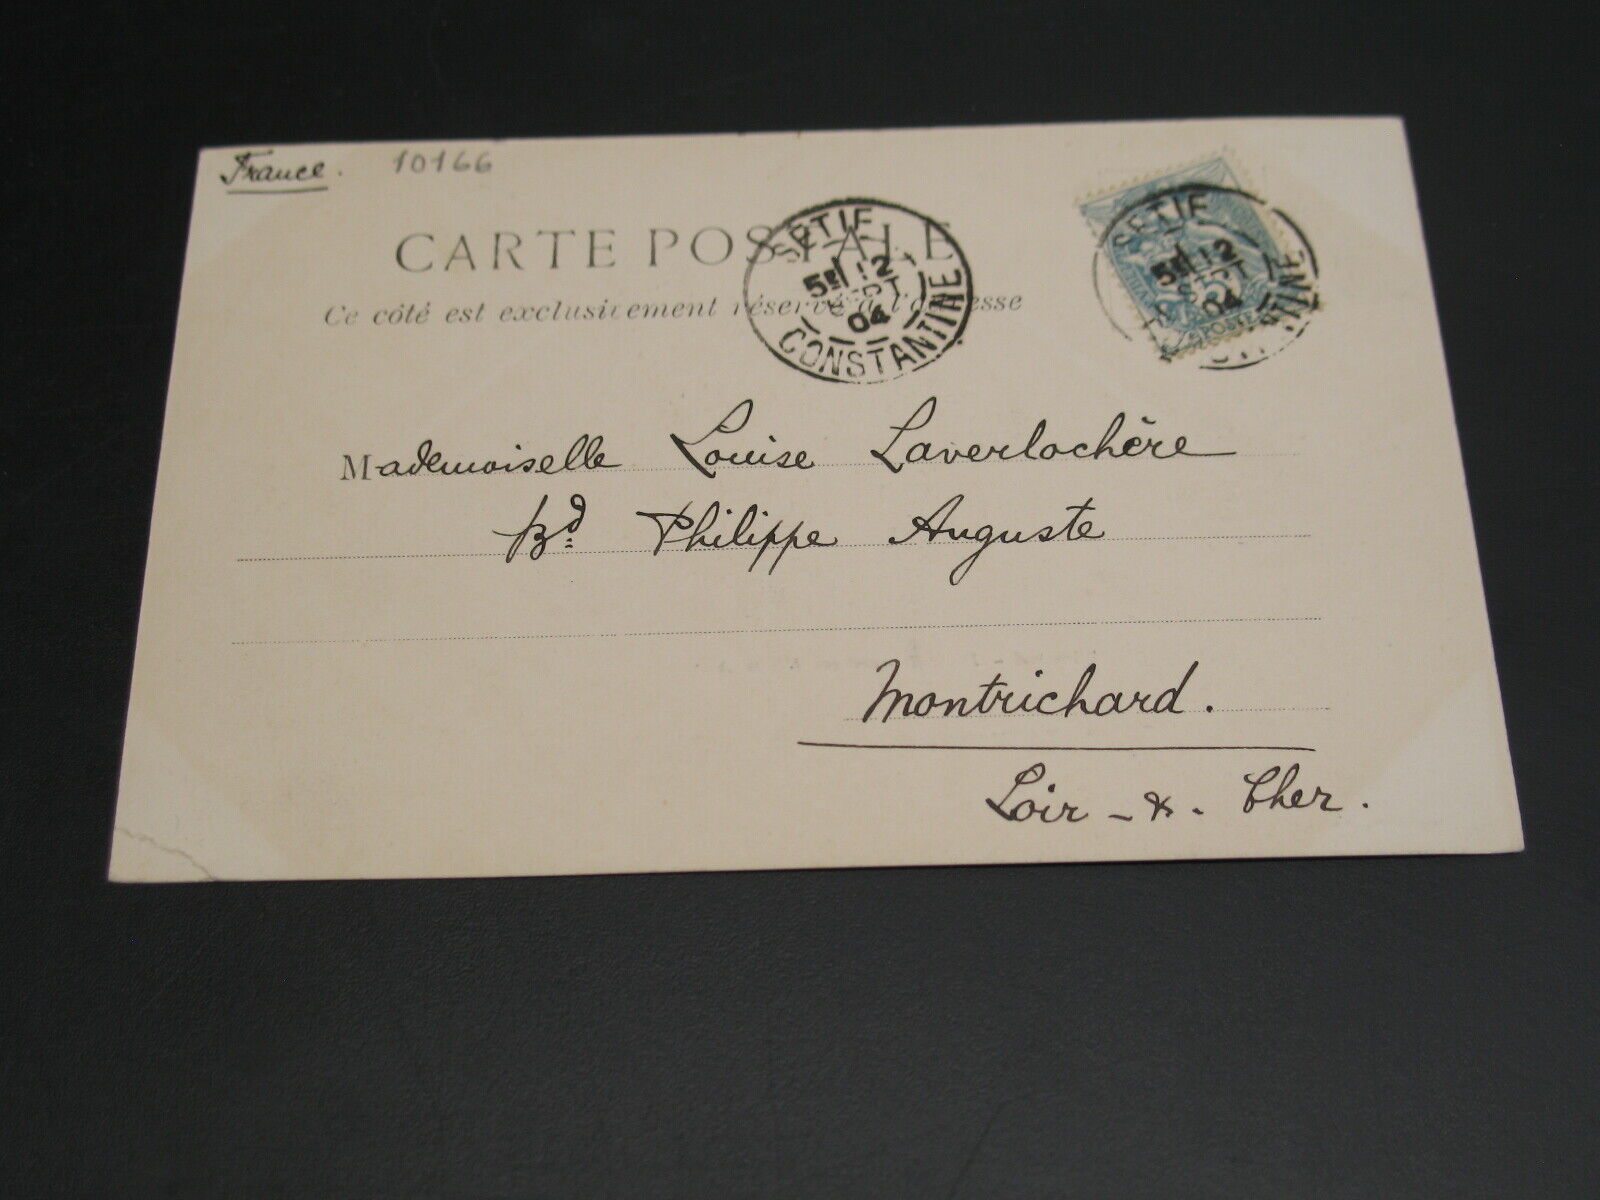 France. 10166
CARTE POSTALE
Ce côté est exclusivement réservé à l'adresse
SETIF
5E 12
SEPT
04
CONSTANTINE
SETIF
5E 12
SEPT
04
POSTE
Mademoiselle Louise Laverlochère
Bd Philippe Auguste
Montrichard.
Loir-&-Cher.